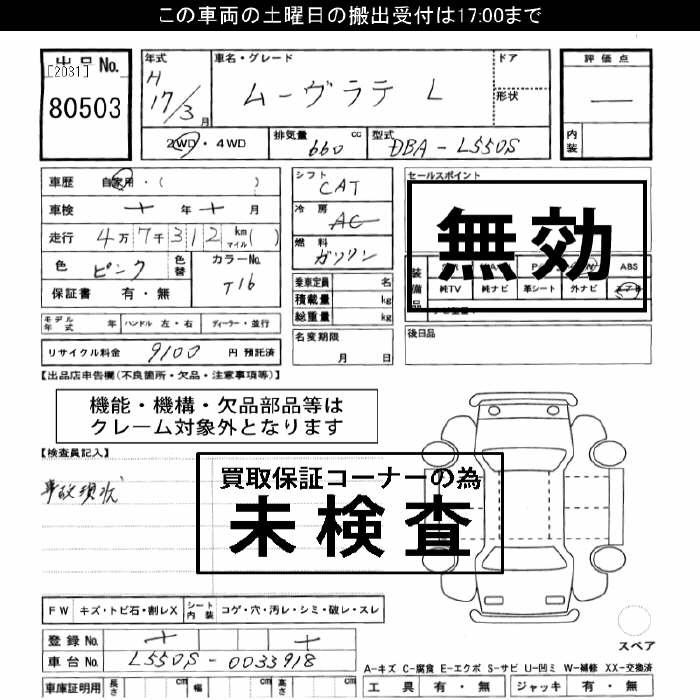 この車両の土曜日の搬出受付は17:00まで
出品No.
[2031]
80503
年式
H
17/3月
車名・グレード
ムーヴラテ L
ドア
形状
評価点
―
内装
2WD・4WD
排気量 660 cc
型式 DBA-L550S
車歴 自家用・( )
車検 年 月
走行 4万7千312 km マイル( )
色 ピンク
色替
カラーNo. T16
保証書 有・無
シフト
CAT
冷房
AC
燃料
ガソリン
乗車定員 名
積載量 kg
総重量 kg
セールスポイント
無効
装備品
ABS
純TV 純ナビ 革シート 外ナビ
モデル年式 年 ハンドル 左・右 ディーラー・並行
リサイクル料金 9100 円 預託済
名変期限
月 日
後日品
【出品店申告欄(不良箇所・欠品・注意事項等)】
機能・機構・欠品部品等は
クレーム対象外となります
【検査員記入】
事故現状
買取保証コーナーの為
未検査
FW キズ・トビ石・割レX シート内装 コゲ・穴・汚レ・シミ・破レ・スレ
登録No.
車台No. L550S-0033918
車庫証明用 長さ cm 幅 cm 高さ cm
スペア
A-キズ C-腐食 E-エクボ S-サビ U-凹ミ W-補修 XX-交換済
工具 有・無 ジャッキ 有・無